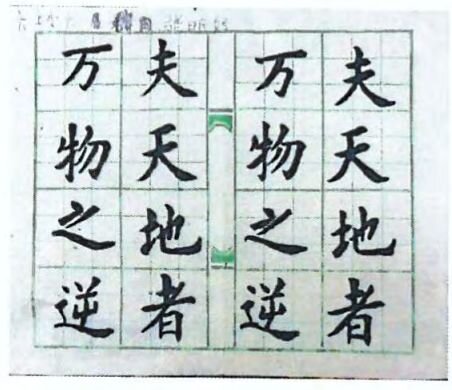 夫天地者
万物之逆
夫天地者
万物之逆